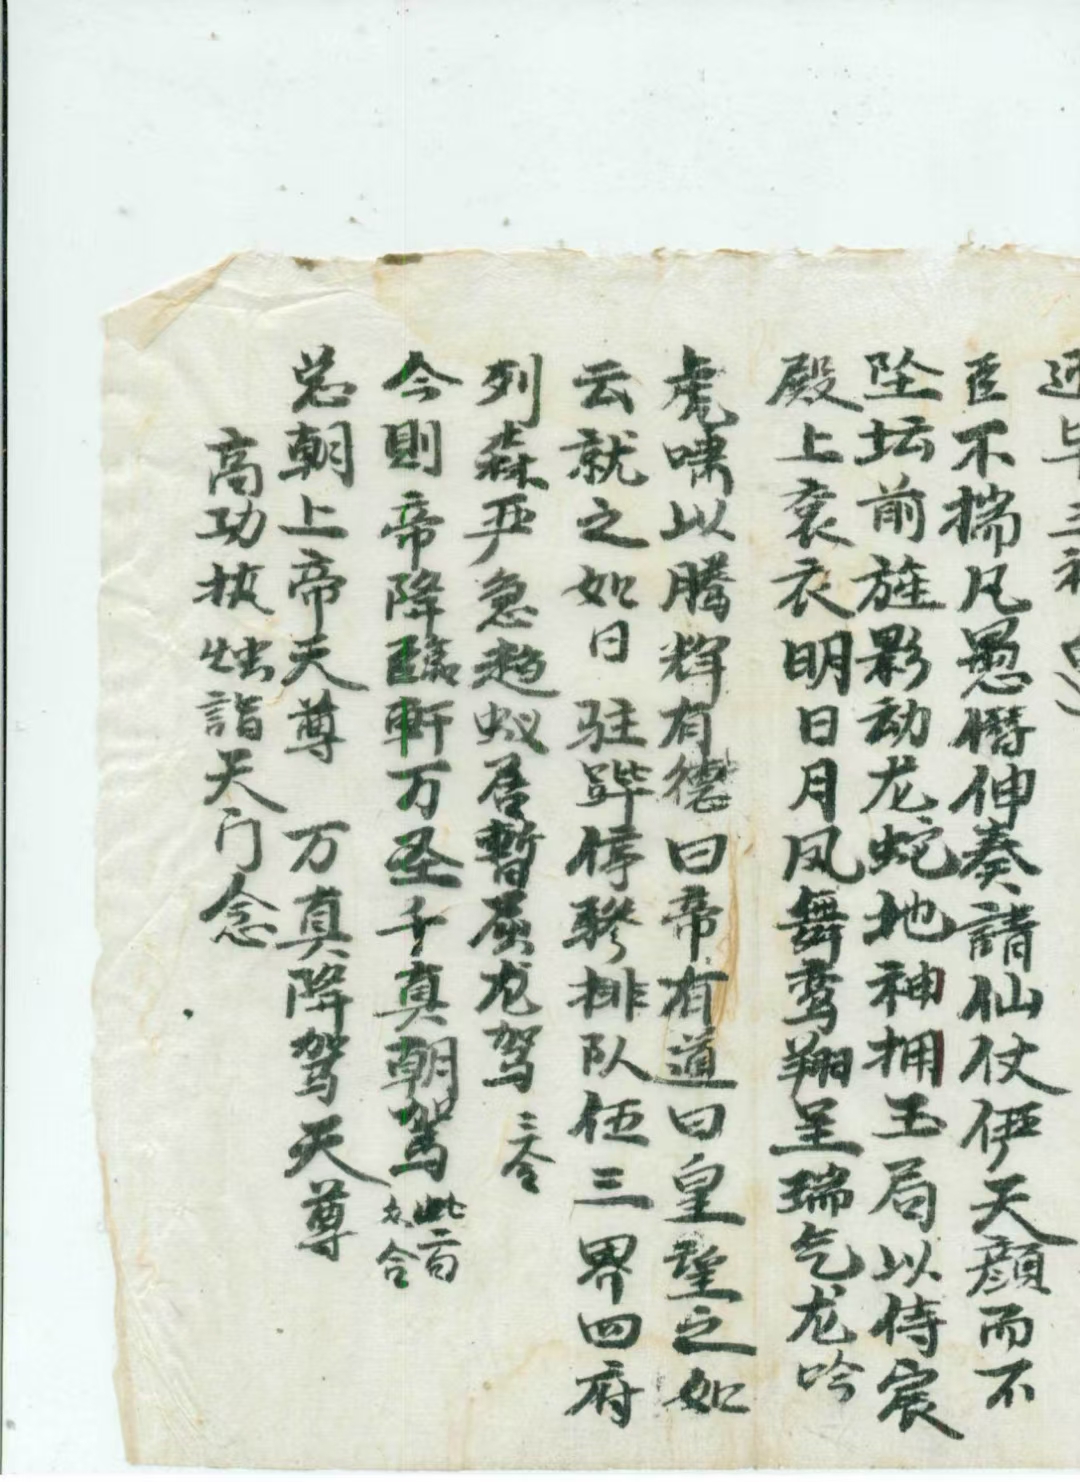 臣不揣凡愚僭伸奏請仙仗伊天顔而不
坠坛前旌影动龙蛇地神拥玉局以侍宸
殿上衮衣明日月凤舞鸾翔呈瑞气龙吟
虎啸以腾辉有德曰帝有道曰皇望之如
云就之如日驻跸停骖排队伍三界四府
列森严急趋蚁居暂屈龙驾 三今
今則帝降臨軒万圣千真朝驾 此二句 众合
总朝上帝天尊 万真降驾天尊
高功执烛詣天门念